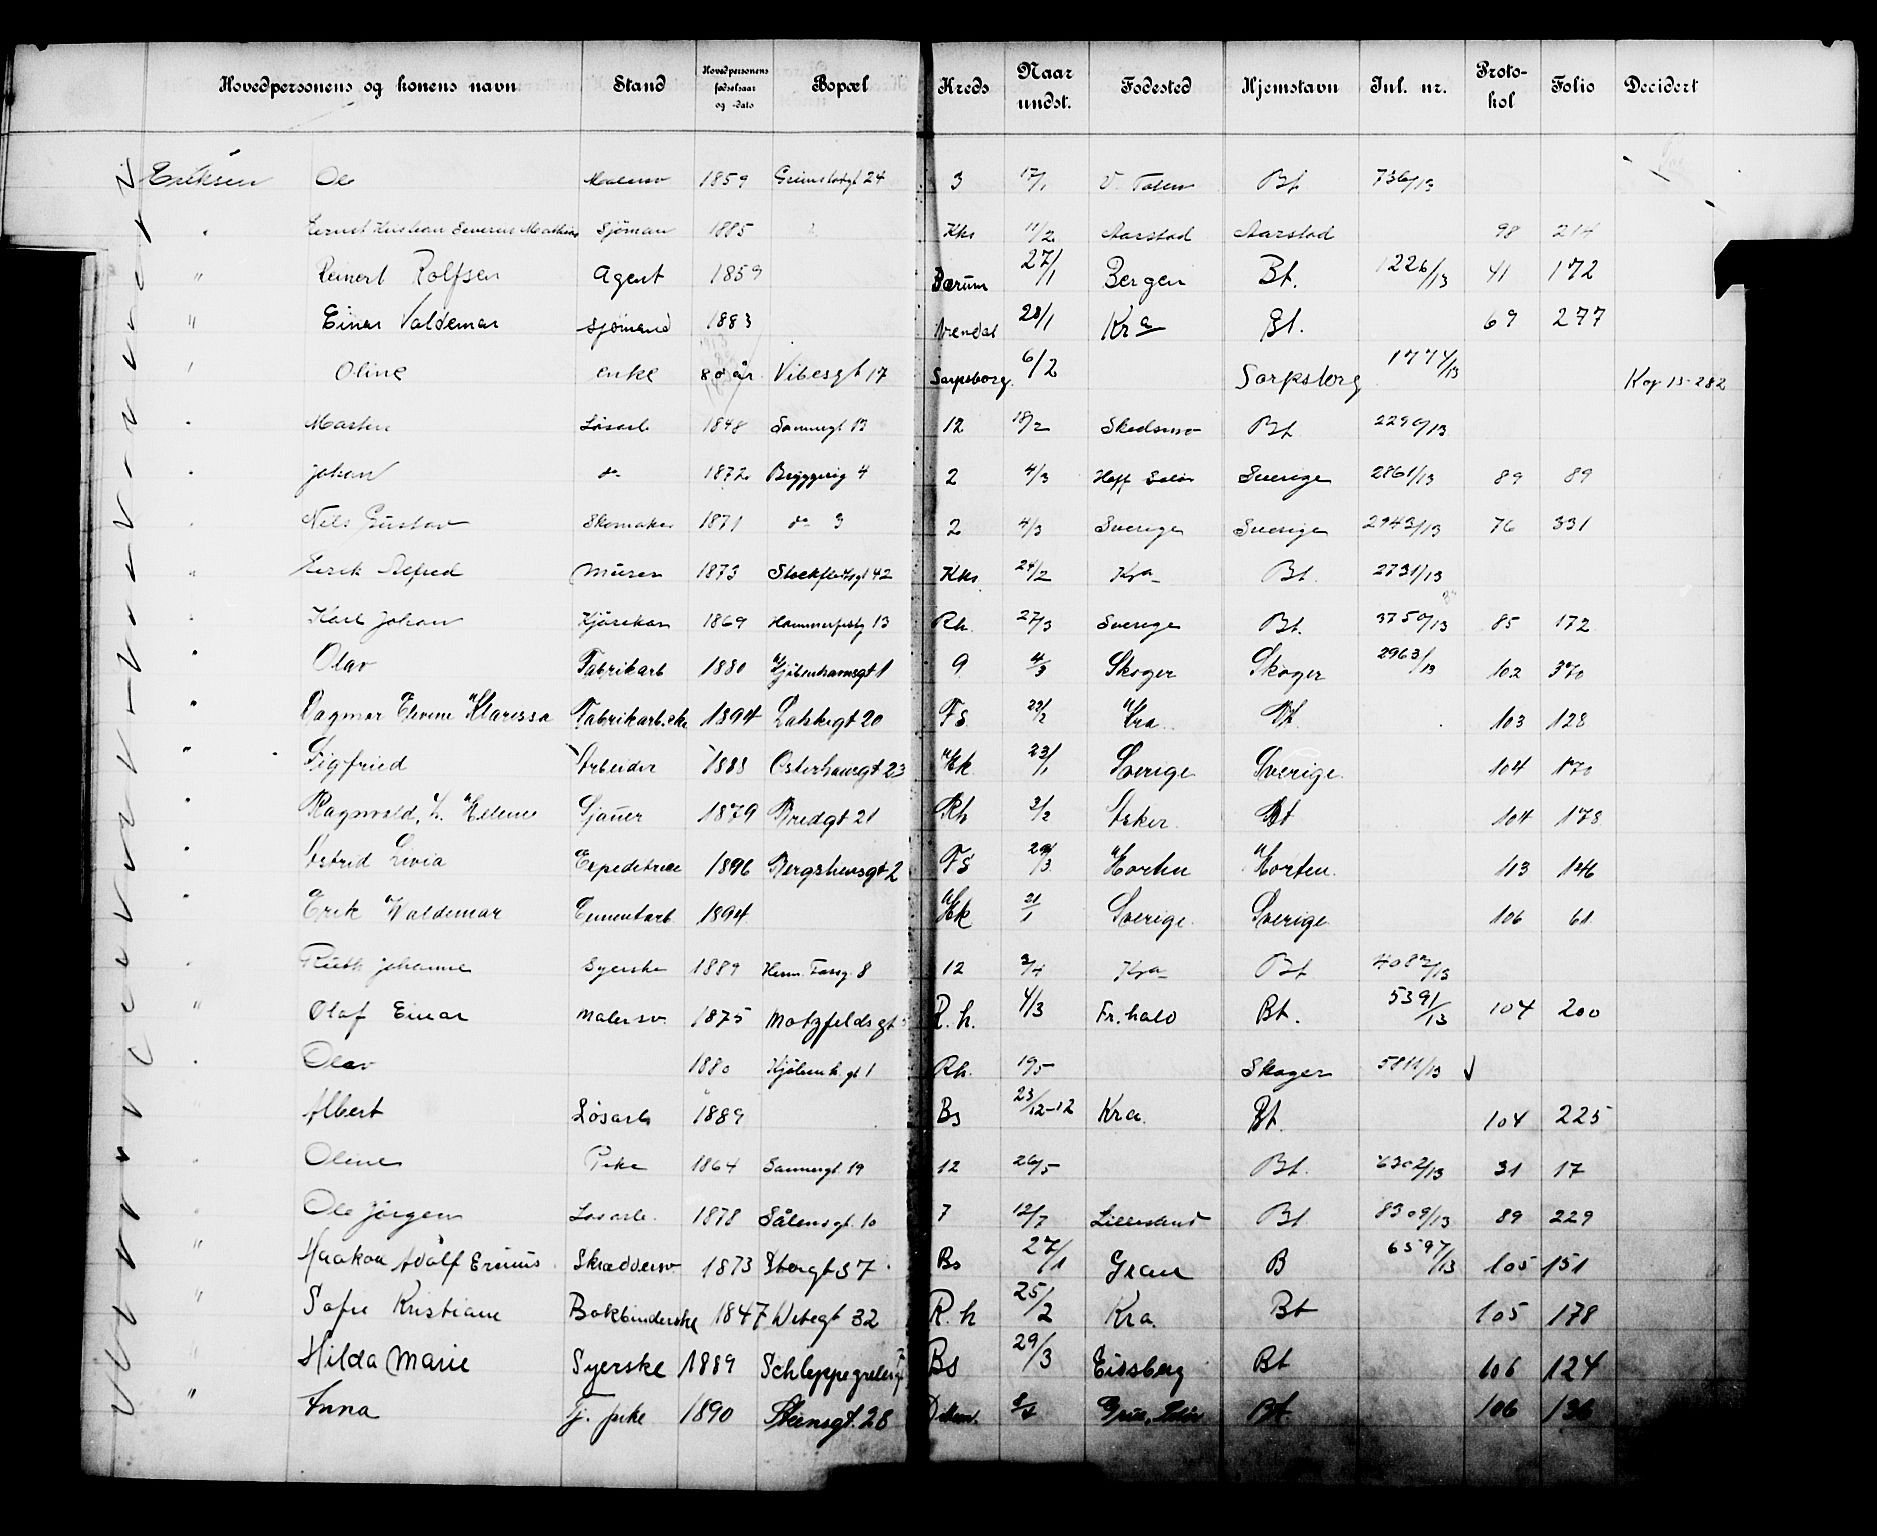 Hovedpersonens og konens navn Stand Hovedpersonens fødselsaar og -dato Bopæl Kreds Naar undst. Fødested Hjemstavn Jnl. nr. Proto- kol Folio Decidert
Eriksen Ole Malersv 1859 Grimstadgt 24 3 17/1 V. Toten Bt 736/13
" Ernst Kristian Severin Mathias Sjöman 1885 Kks 11/2 Aarstad Aarstad 98 214
" Reinert Rolfsen Agent 1859 Bærum 27/1 Bergen Bt. 1226/13 41 172
" Einar Valdemar Sjømand 1883 Arendal 28/1 Kra Bt. 69 277
" Oline enke 80 år Vibesgt 17 Sarpsborg. 6/2 Sarpsborg 1774/13 Kop 13-282
" Martin Løsarb 1848 Sannergt 13 12 18/2 Skedsmo Bt 2290/13
" Johan do 1872 Bryggerig 4 2 4/3 Hoff Solör Sverige 2861/13 89 89
" Nils Gustav Skomaker 1871 do 3 2 4/3 Sverige Sverige 2943/13 76 331
" Erik Alfred Murer 1873 Stockfletsgt 42 Kks 24/2 Kra Bt. 2731/13
" Karl Johan Kjörekar 1869 Hammerfestg 13 Rh. 27/3 Sverige Bt. 3750/13 85 172
" Olav Fabrikarb 1880 Kjöbenhavnsgt 1 9 4/3 Skoger Skoger 2963/13 102 370
" Dagmar Elevine Klarissa Fabrikarb.ske 1894 Dalsbgt 20 FS. 22/2 Kra. Bt. 103 128
" Sigfried Arbeider 1888 Osterhausgt 23 Kk 23/1 Sverige Sverige. 104 170
" Ragnvald, h. Helene Sjauer 1879 Bredgt 21 Rh 3/2 Asker. Bt 104 178
" Astrid Livia Expeditrice 1896 Bergsliensgt 2 FS 29/3 Horten Horten. 113 146
" Erik Valdemar Cementarb. 1894 Kk 21/1 Sverige. Sverige 106 61
" Ruth Johanne Syerske 1889 Herm. Fossg. 8 12 3/4 Kra Bt 4082/13
" Olaf Einar Malersv. 1875 Motzfeldsgt R.h. 4/3 Fr.hald Bt. 5391/13 104 200
" Olav 1880 Kjöbenh.gt 1 Rh. 19/5 Skoger 5811/13
" Albert Løsarb 1889 Bs 23/12-12 Kra. Bt. 104 225
" Olene Pike 1864 Sannergt 19 12 26/5 Bt. 6302/13 31 17
" Ole Jörgen Løsarb. 1878 Sålensgt. 10 7 12/7 Lillesand Bt 8309/13 89 229
" Haakon Adolf Ersinus. Skræddersv. 1873 Ibsgt 37 Bs 27/1 Gran B 6597/13 105 151
" Sofie Kristiane Bokbinderske 1847 Vibegt 32 R.h 25/2 Kra. Bt 105 178
" Hilda Marie Syerske 1889 Schleppegrelsgt Bs 29/3 Eidsberg Bt 106 124
" Anna Tj. pike 1890 Steensgt. 28 Dkmn. Grue, Solör Bt. 106 136